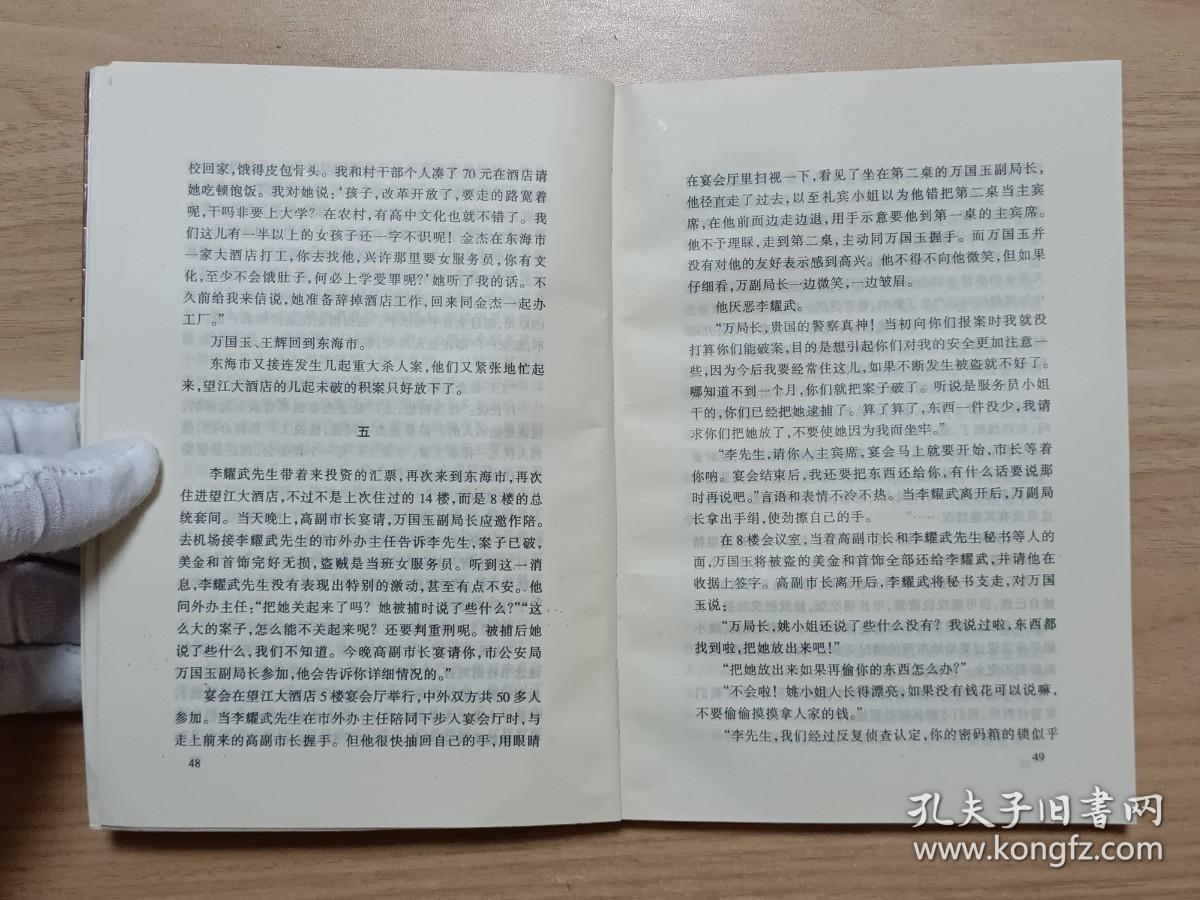 校回家，饿得皮包骨头。我和村干部个人凑了70元在酒店请
她吃顿饱饭。我对她说：‘孩子，改革开放了，要走的路宽着
呢，干吗非要上大学？在农村，有高中文化也就不错了。我
们这儿有一半以上的女孩子还一字不识呢！金杰在东海市
一家大酒店打工，你去找他，兴许那里要女服务员，你有文
化，至少不会饿肚子，何必上学受罪呢？’她听了我的话。不
久前给我来信说，她准备辞掉酒店工作，回来同金杰一起办
工厂。”
万国玉、王辉回到东海市。
东海市又接连发生几起重大杀人案，他们又紧张地忙起
来，望江大酒店的几起未破的积案只好放下了。
五
李耀武先生带着来投资的汇票，再次来到东海市，再次
住进望江大酒店，不过不是上次住过的14楼，而是8楼的总
统套间。当天晚上，高副市长宴请，万国玉副局长应邀作陪。
去机场接李耀武先生的市外办主任告诉李先生，案子已破，
美金和首饰完好无损，盗贼是当班女服务员。听到这一消
息，李耀武先生没有表现出特别的激动，甚至有点不安。他
问外办主任：“把她关起来了吗？她被捕时说了些什么？”“这
么大的案子，怎么能不关起来呢？还要判重刑呢。被捕后她
说了些什么，我们不知道。今晚高副市长宴请你，市公安局
万国玉副局长参加，他会告诉你详细情况的。”
宴会在望江大酒店5楼宴会厅举行，中外双方共50多人
参加。当李耀武先生在市外办主任陪同下步人宴会厅时，与
走上前来的高副市长握手。但他很快抽回自己的手，用眼睛
48
在宴会厅里扫视一下，看见了坐在第二桌的万国玉副局长，
他径直走了过去，以至礼宾小姐以为他错把第二桌当主宾
席，在他前面边走边退，用手示意要他到第一桌的主宾席。
他不予理睬，走到第二桌，主动同万国玉握手。而万国玉并
没有对他的友好表示感到高兴。他不得不向他微笑，但如果
仔细看，万副局长一边微笑，一边皱眉。
他厌恶李耀武。
“万局长，贵国的警察真神！当初向你们报案时我就没
打算你们能破案，目的是想引起你们对我的安全更加注意一
些，因为今后我要经常住这儿，如果不断发生被盗就不好了。
哪知道不到一个月，你们就把案子破了。听说是服务员小姐
干的，你们已经把她逮捕了。算了算了，东西一件没少，我请
求你们把她放了，不要使她因为我而坐牢。”
“李先生，请你人主宾席，宴会马上就要开始，市长等着
你呐。宴会结束后，我还要把东西还给你，有什么话要说那
时再说吧。”言语和表情不冷不热。当李耀武离开后，万副局
长拿出手绢，使劲擦自己的手。
在8楼会议室，当着高副市长和李耀武先生秘书等人的
面，万国玉将被盗的美金和首饰全部还给李耀武，并请他在
收据上签字。高副市长离开后，李耀武将秘书支走，对万国
玉说：
“万局长，姚小姐还说了些什么没有？我说过啦，东西都
找到啦，把她放出来吧！”
“把她放出来如果再偷你的东西怎么办？”
“不会啦！姚小姐人长得漂亮，如果没有钱花可以说嘛，
不要偷偷摸摸拿人家的钱。”
“李先生，我们经过反复侦查认定，你的密码箱的锁似乎
49
孔夫子旧书网
www.kongfz.com